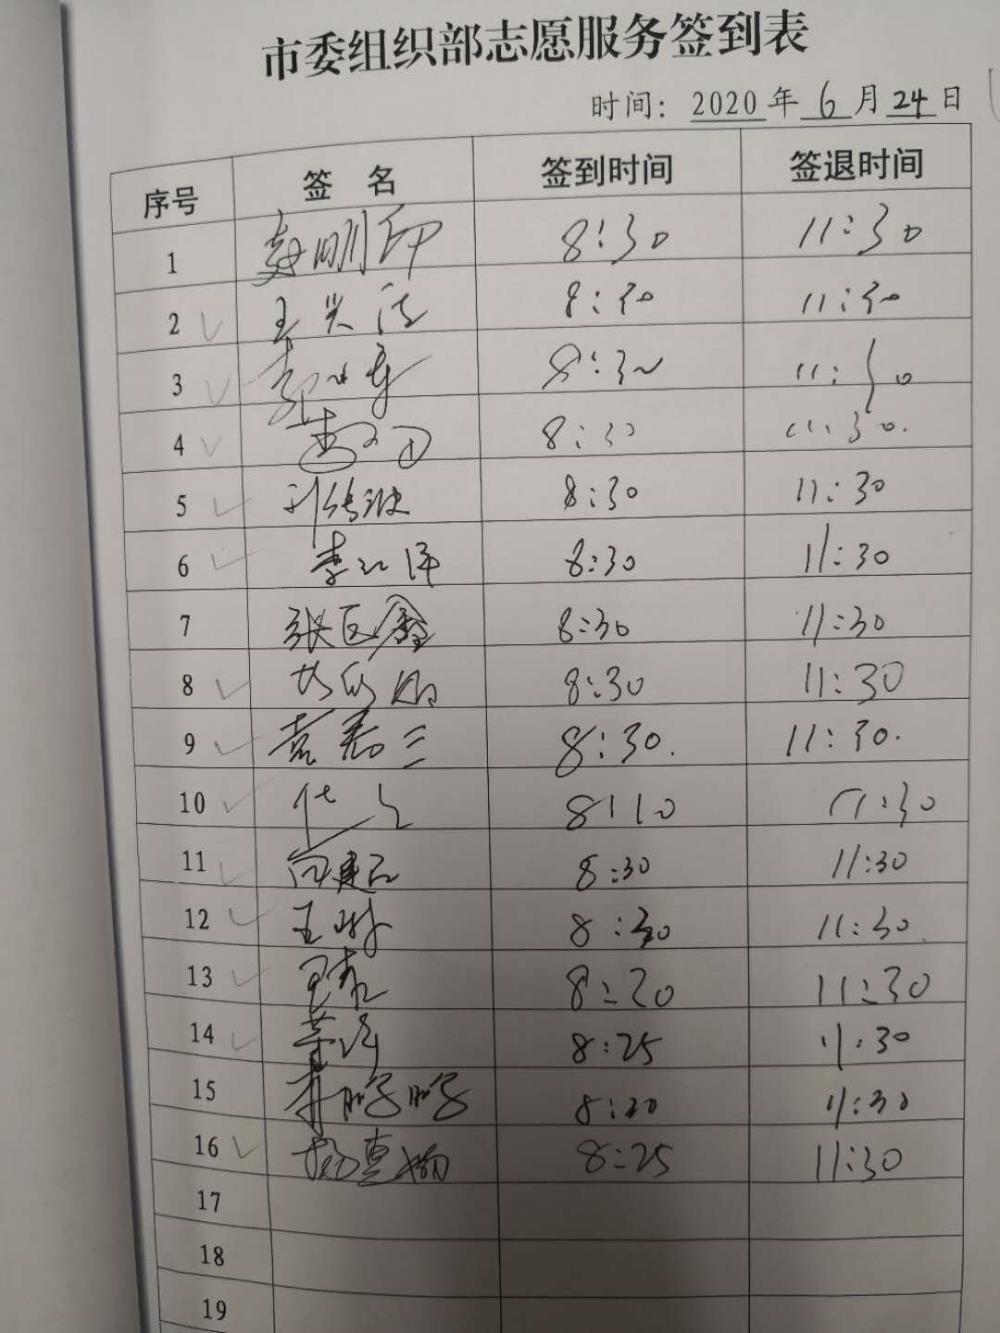 市委组织部志愿服务签到表
时间：2020年6月24日
序号 签 名 签到时间 签退时间
1 8:30 11:30
2 王兴 8:30 11:30
3 8:30 11:30
4 8:30 11:30.
5 刘 8:30 11:30
6 李红泽 8:30 11:30
7 张巨鑫 8:30 11:30
8 8:30 11:30
9 袁春三 8:30. 11:30.
10 8:10 11:30
11 向建 8:30 11:30
12 王琳 8:30 11:30
13 8:20 11:30
14 8:25 11:30
15 李鹏鹏 8:20 11:30
16 杨惠 8:25 11:30
17
18
19